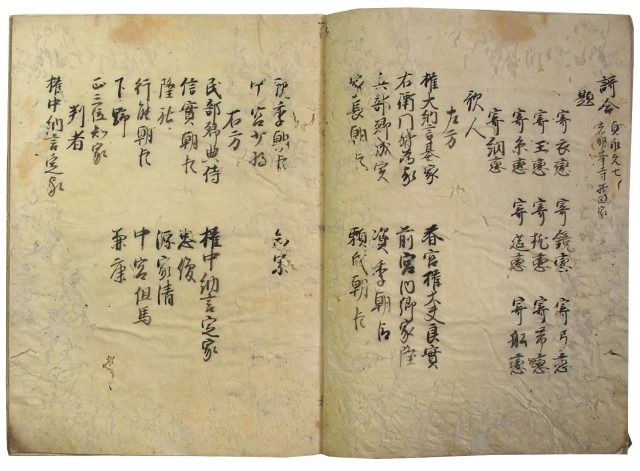 謌合 貞永元七
光明峯寺摂政家
題
寄衣戀 寄鏡戀 寄弓戀
寄玉戀 寄枕戀 寄帯戀
寄糸戀 寄莚戀 寄舩戀
寄網戀
歌人
左方
権大納言基家 春宮権大夫良實
右衛門督為家 前宮内卿家隆
兵部卿成实 資季朝臣
家長朝臣 頼氏朝臣
季朝臣 知宗
中宮少将
右方
民部卿典侍 権中納言定家
信實朝臣 忠俊
隆祐 源家清
行能朝臣 中宮但馬
下野 兼康
正三位知家
判者
権中納言定家